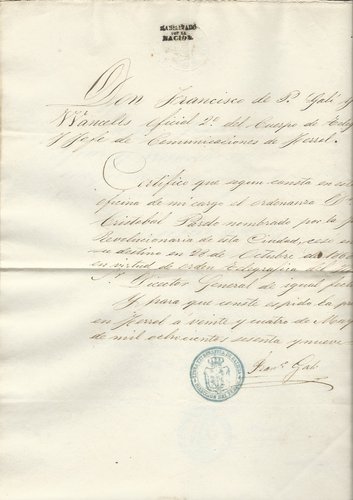 HABILITADO
POR LA
NACION.
Don Francisco de P. Gali y
Wanceles Oficial 2º del Cuerpo de Teleg
y Jefe de Comunicaciones de Ferrol.
Certifico que segun consta en es
oficina de mi cargo el ordenanza Dn
Cristobal Pardo nombrado por la J
Revolucionaria de esta Ciudad, cesó en
su destino en 28 de Octubre de 186
en virtud de orden telegrafica del
Sr. Director General de igual fecha
Y para que conste espido la pre
en Ferrol á veinte y cuatro de May
de mil ochocientos sesenta y nueve
Franco Gali